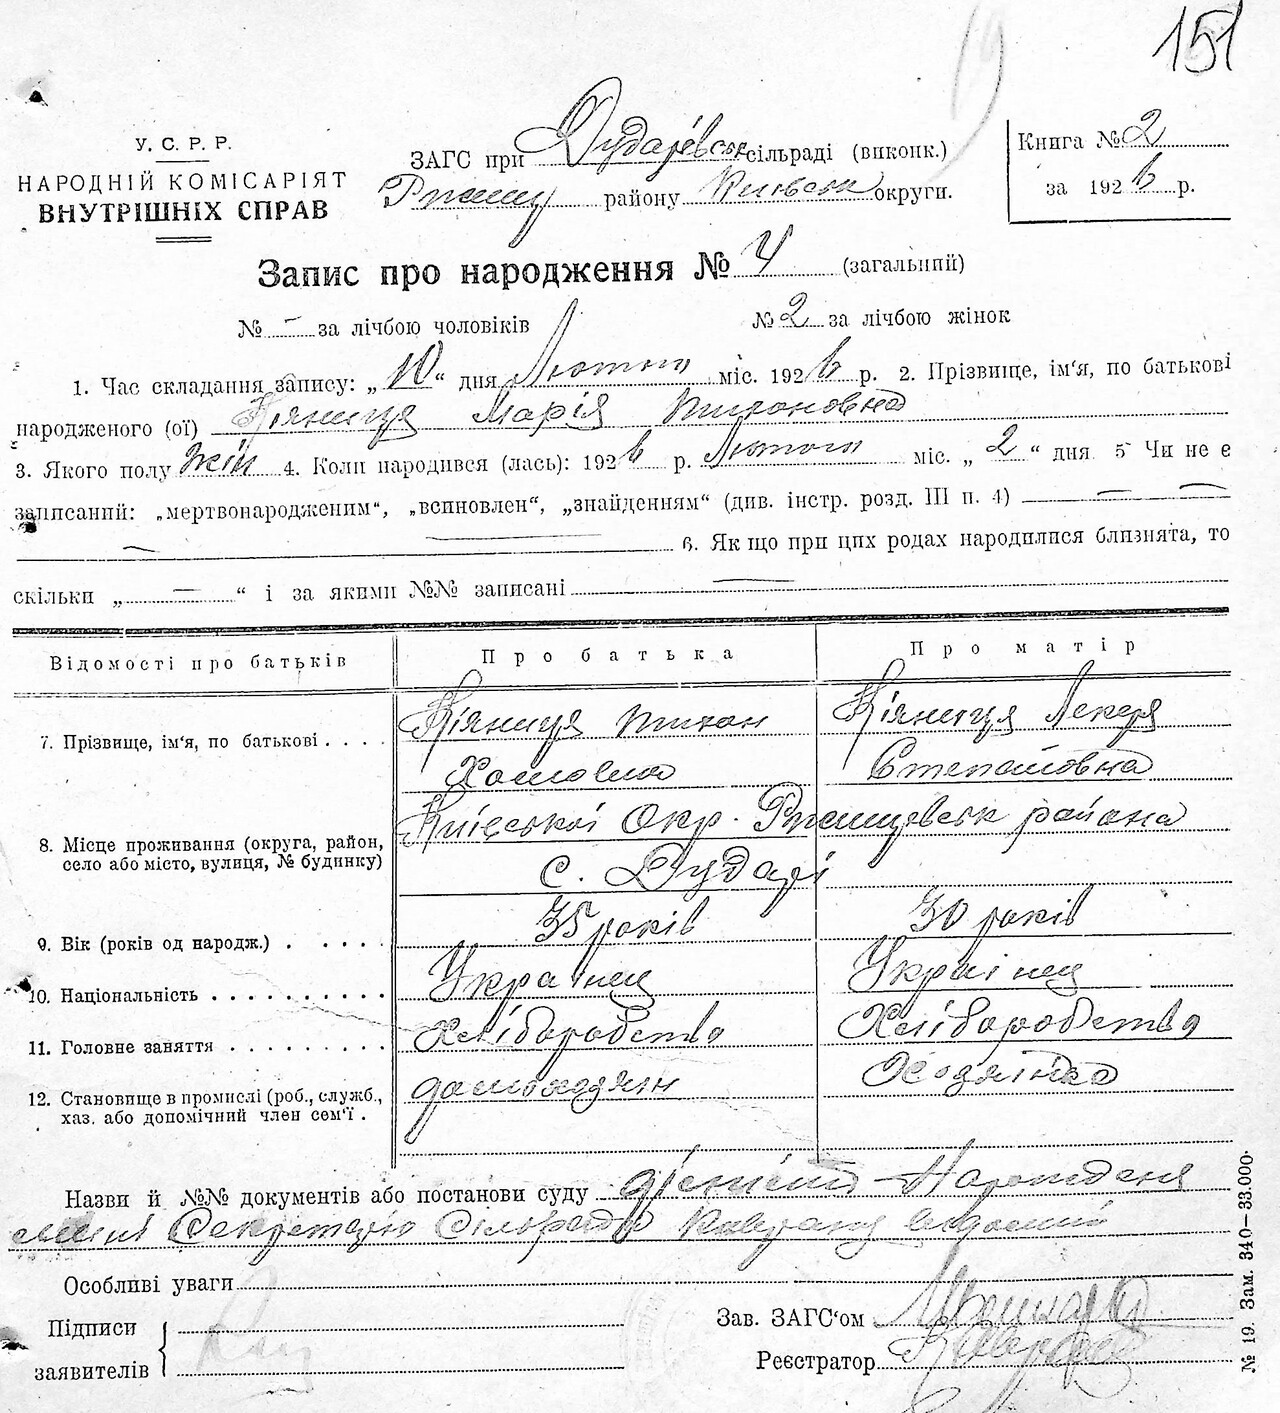 151
У. С. Р. Р.
НАРОДНІЙ КОМІСАРІЯТ
ВНУТРІШНІХ СПРАВ
ЗАГС при Дударівськ сільраді (виконк.)
району Київськ округи.
Книга № 2
за 1926 р.
Запис про народження № 4 (загальний)
№ - за лічбою чоловіків № 2 за лічбою жінок
1. Час складання запису: „10“ дня Лютого міс. 1926 р. 2. Прізвище, ім'я, по батькові
народженого (ої) Кіяниця Марія Тихоновна
3. Якого полу жін 4. Коли народився (лась): 1926 р. Лютого міс. „2“ дня 5 Чи не є
записаний: „мертвонародженим“, „всиновлен“, „знайденним“ (див. інстр. розд. III п. 4) — —
— — 6. Якщо при цих родах народилися близнята, то
скільки „ — “ і за якими №№ записані —
Відомості про батьків Про батька Про матір
7. Прізвище, ім'я, по батькові . . . . Кіяниця Тихон Кіяниця Лекеря
Хомовна Степановна
8. Місце проживання (округа, район, село або місто, вулиця, № будинку) Київської Окр. Ржищевськ района
с. Дударі
9. Вік (років од народж.) . . . . . 35 років 30 років
10. Національність . . . . . . . . . . Украінец Украінец
11. Головне заняття . . . . . . . . . Хліборобство Хліборобство
12. Становище в промислі (роб., служб., хаз. або допомічний член сем'ї . домоходзяін Ходзяінка
Назви й №№ документів або постанови суду
Секретарю Сільради
Особливі уваги
Підписи
заявителів
Зав. ЗАГС'ом
Реєстратор
№ 19. Зам. 340—33.000.